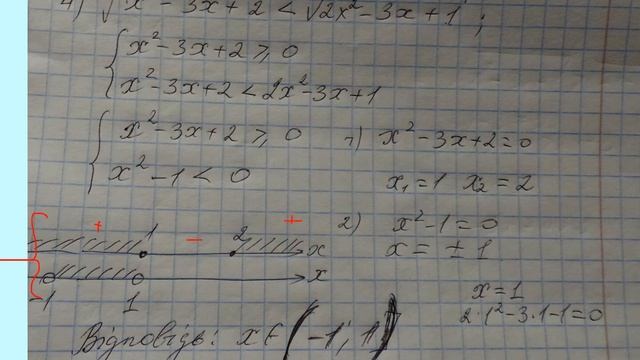 4) √x² - 3x + 2 < √2x² - 3x + 1 ;
x² - 3x + 2 ⩾ 0
x² - 3x + 2 < 2x² - 3x + 1
x² - 3x + 2 ⩾ 0
x² - 1 < 0
1) x² - 3x + 2 = 0
x₁ = 1 x₂ = 2
2) x² - 1 = 0
x = ± 1
+ 1 - 2 + x
x
-1 1
x = 1
2·1² - 3·1 - 1 = 0
Відповідь: x ∈ (-1; 1)